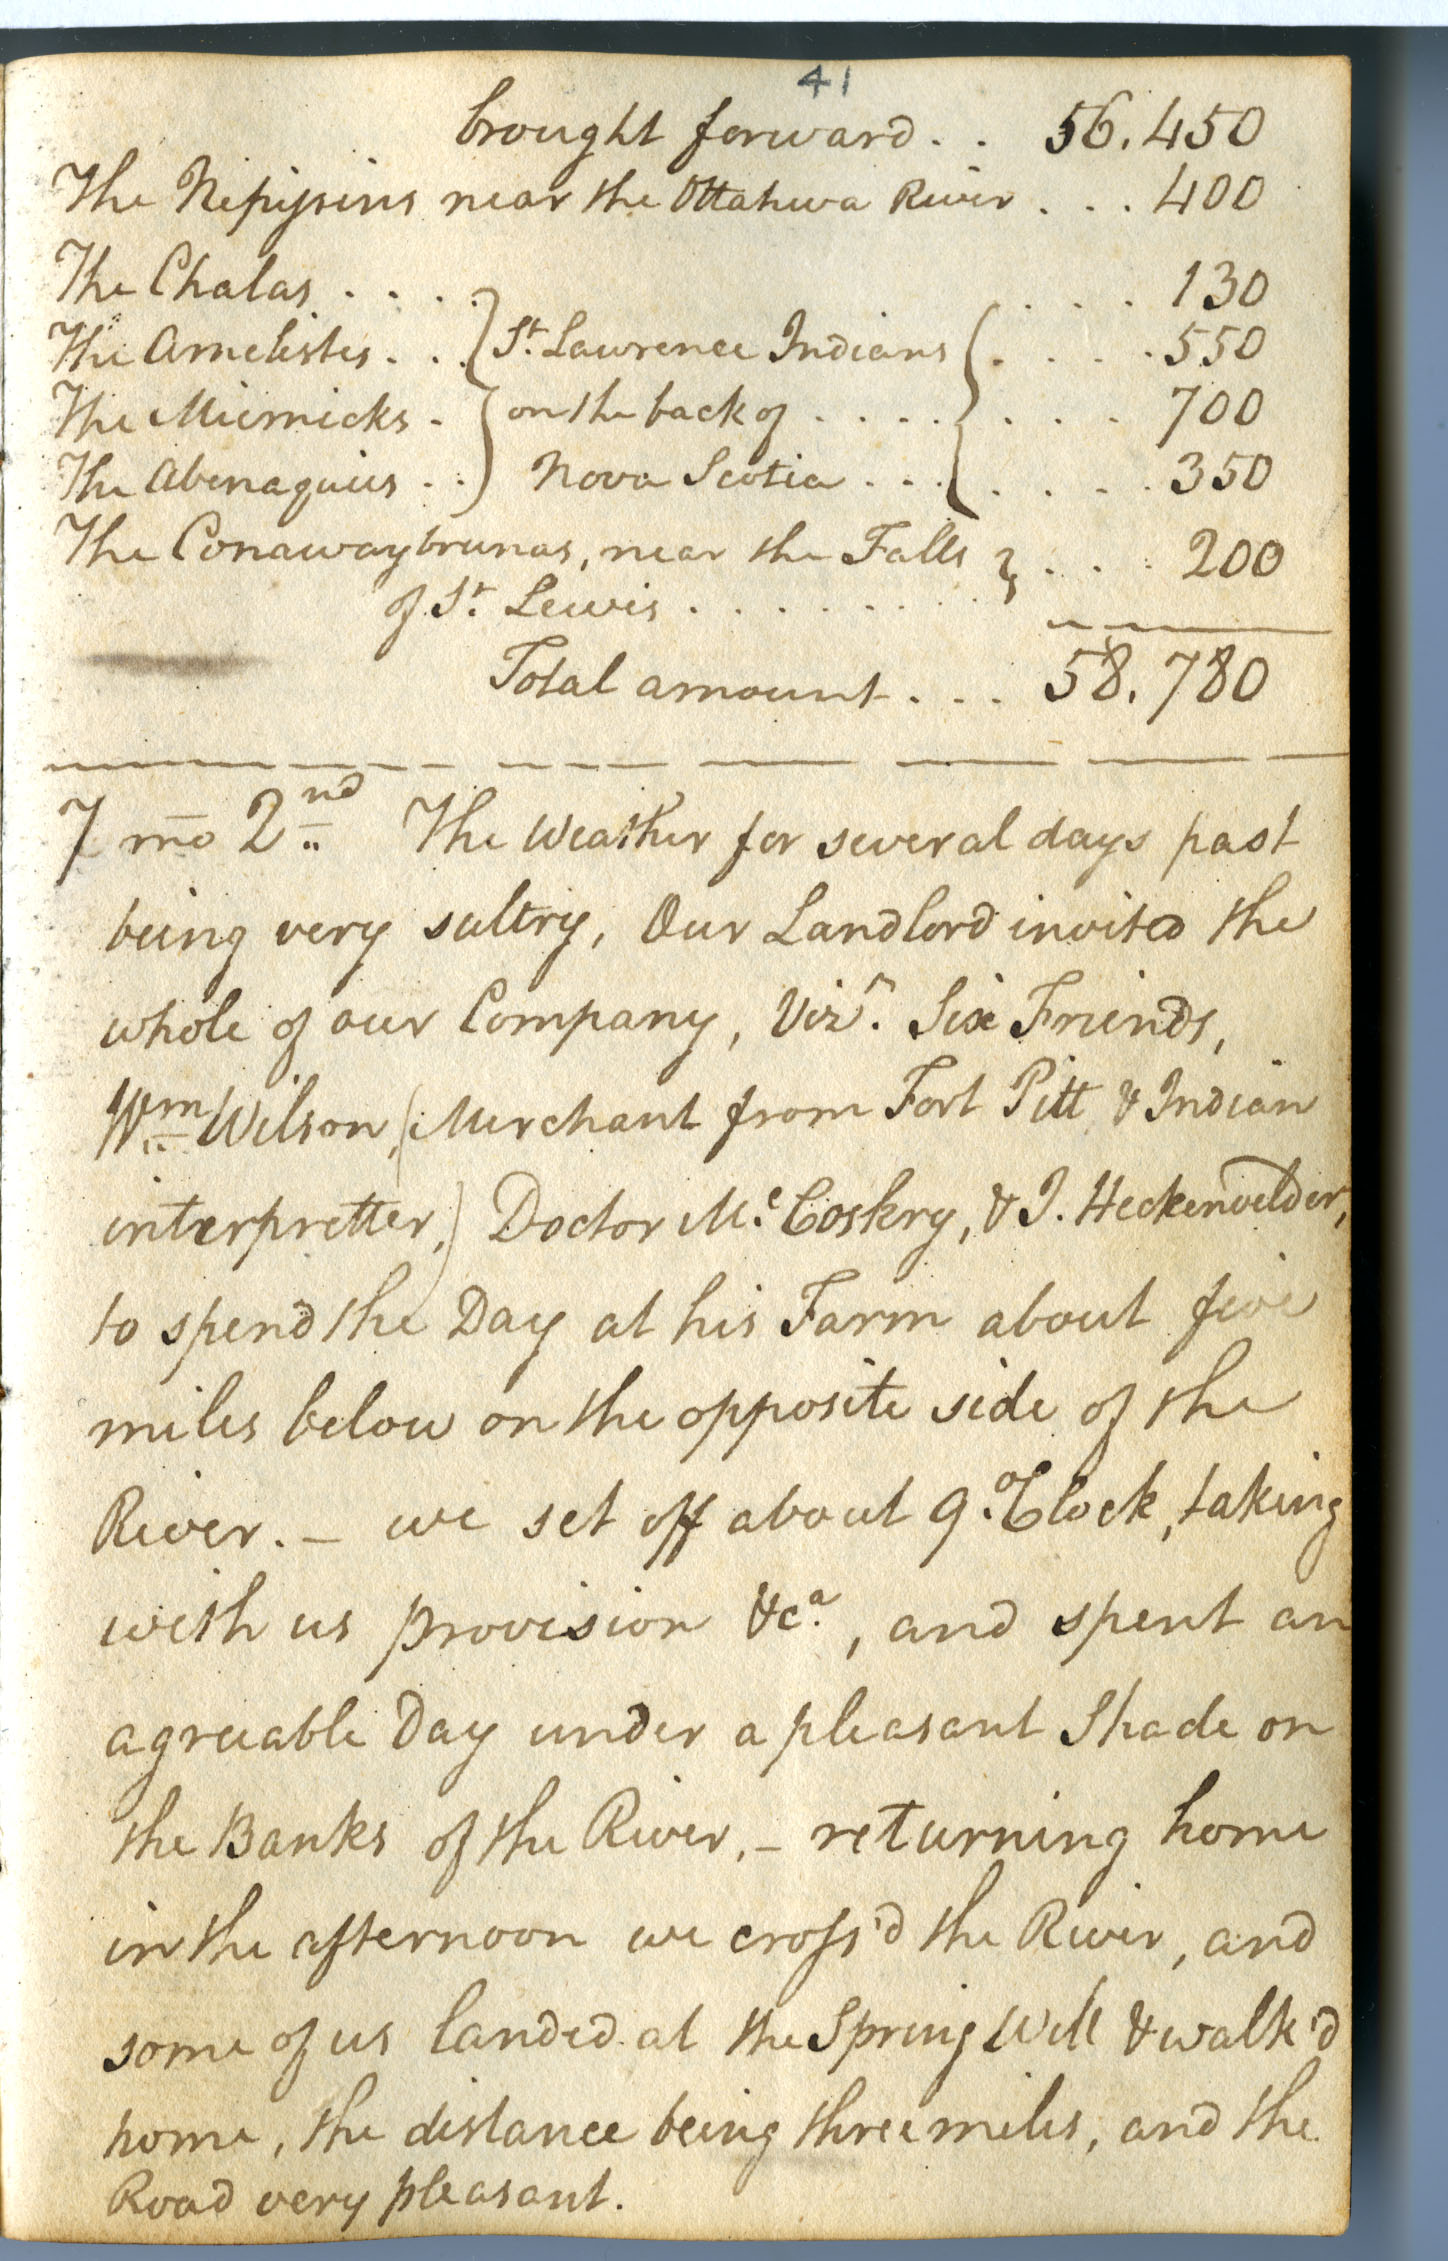 41
brought forward . . 56.450
The Nepisins near the Ottahwa River . . . 400
The Chalas . . . . . . . . 130
The Amelistes . . . St. Lawrence Indians . . . . 550
The Micmicks . on the back of . . . . . . . . 700
The Abenaquies . . Nova Scotia . . . . . . . 350
The Conawaybrunas, near the Falls . . . 200
of St. Lewis . . . . . . . .
Total amount . . . 58.780
7 mo 2nd The Weather for several days past
being very sultry, Our Landlord invited the
whole of our Company, Vizr. Six Friends,
Wm Wilson, (Merchant from Fort Pitt & Indian
interpretter,) Doctor Mc.Coskry, & J. Heckenvelder,
to spend the Day at his Farm about five
miles below on the opposite side of the
River. – we set off about 9 oClock, taking
with us provision &ca., and spent an
agreeable Day under a pleasant Shade on
the Banks of the River, – returning home
in the afternoon we cross'd the River, and
some of us landed at the Spring Well & walk'd
home, the distance being three miles, and the
Road very pleasant.